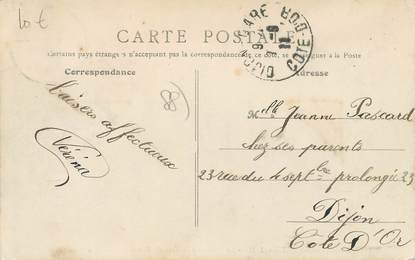 10 €
CARTE POSTALE
Certains pays étrangers n'acceptant pas la correspondance de ce côté, se renseigner à la Poste
Correspondance
Adresse
DIJON GARE
COTE D'OR
88
Baisers affectueux
M lle Jeanne Pascard
chez ses parents
23 rue du 4 sept bre prolongée 23
Dijon
Cote D'Or